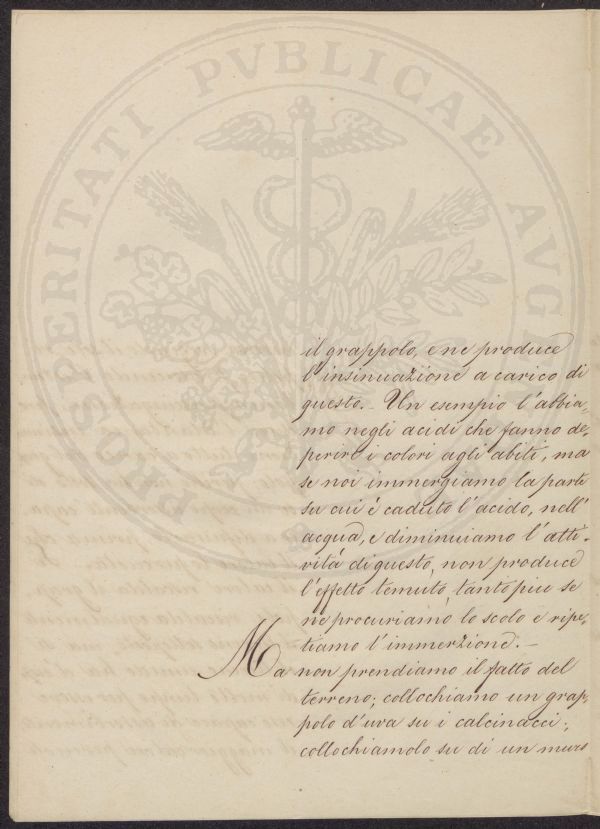 PROSPERITATI PVBLICAE AVGENDAE
il grappolo, e ne produce
l'insinuazione a carico di
questo. - Un esempio l'abbia,
mo negli acidi che fanno de,
perire i colori agli abiti, ma
se noi immergiamo la parte
su cui é caduto l'acido, nell'
acqua, e diminuiamo l'atti-
vitá di questo, non produce
l'effetto temuto, tanto piu se
ne procuriamo lo scolo e ripe,
tiamo l'immerzione. -
Ma non prendiamo il fatto del
terreno; collochiamo un grap,
polo d'uva su i calcinacci;
collochiamolo su di un muro